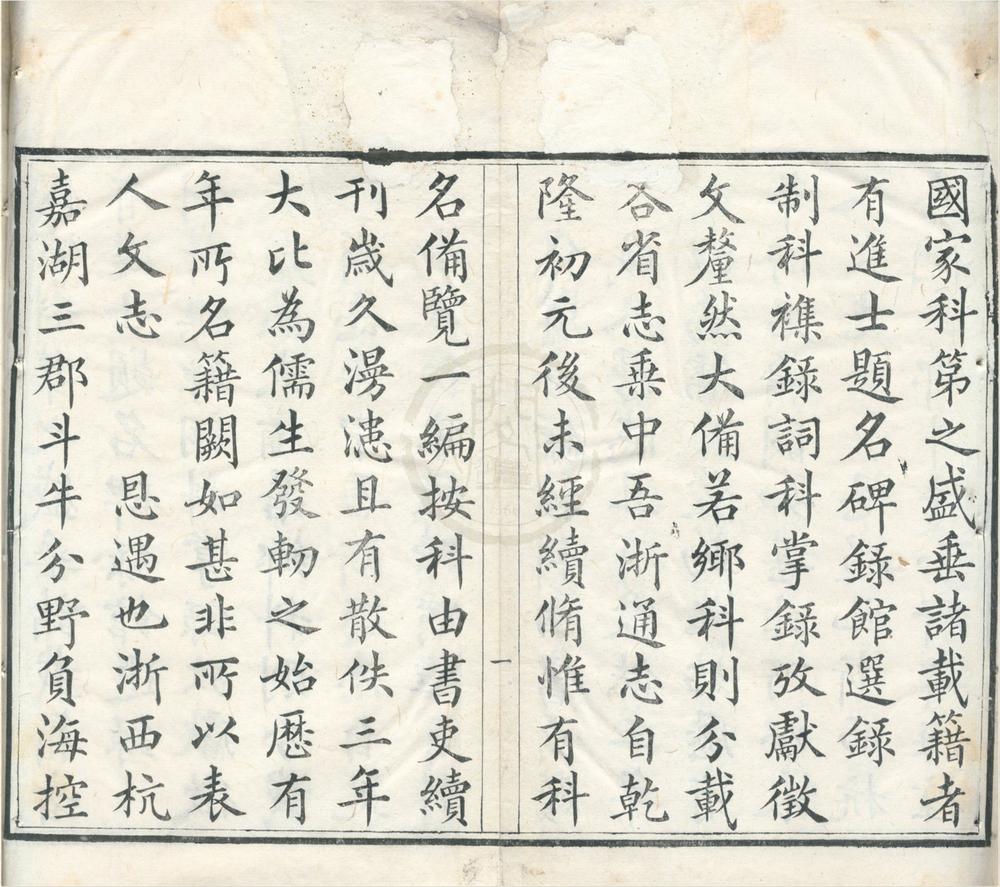 國家科第之盛垂諸載籍者
有進士題名碑錄館選錄
制科襍錄詞科掌錄攷獻徵
文釐然大備若鄉科則分載
各省志乗中吾浙通志自乾
隆初元後未經續脩惟有科
一
名備覽一編按科由書吏續
刊歲久漫漶且有散佚三年
大比為儒生發軔之始歷有
年所名籍闕如甚非所以表
人文志恩遇也浙西杭
嘉湖三郡斗牛分野負海控